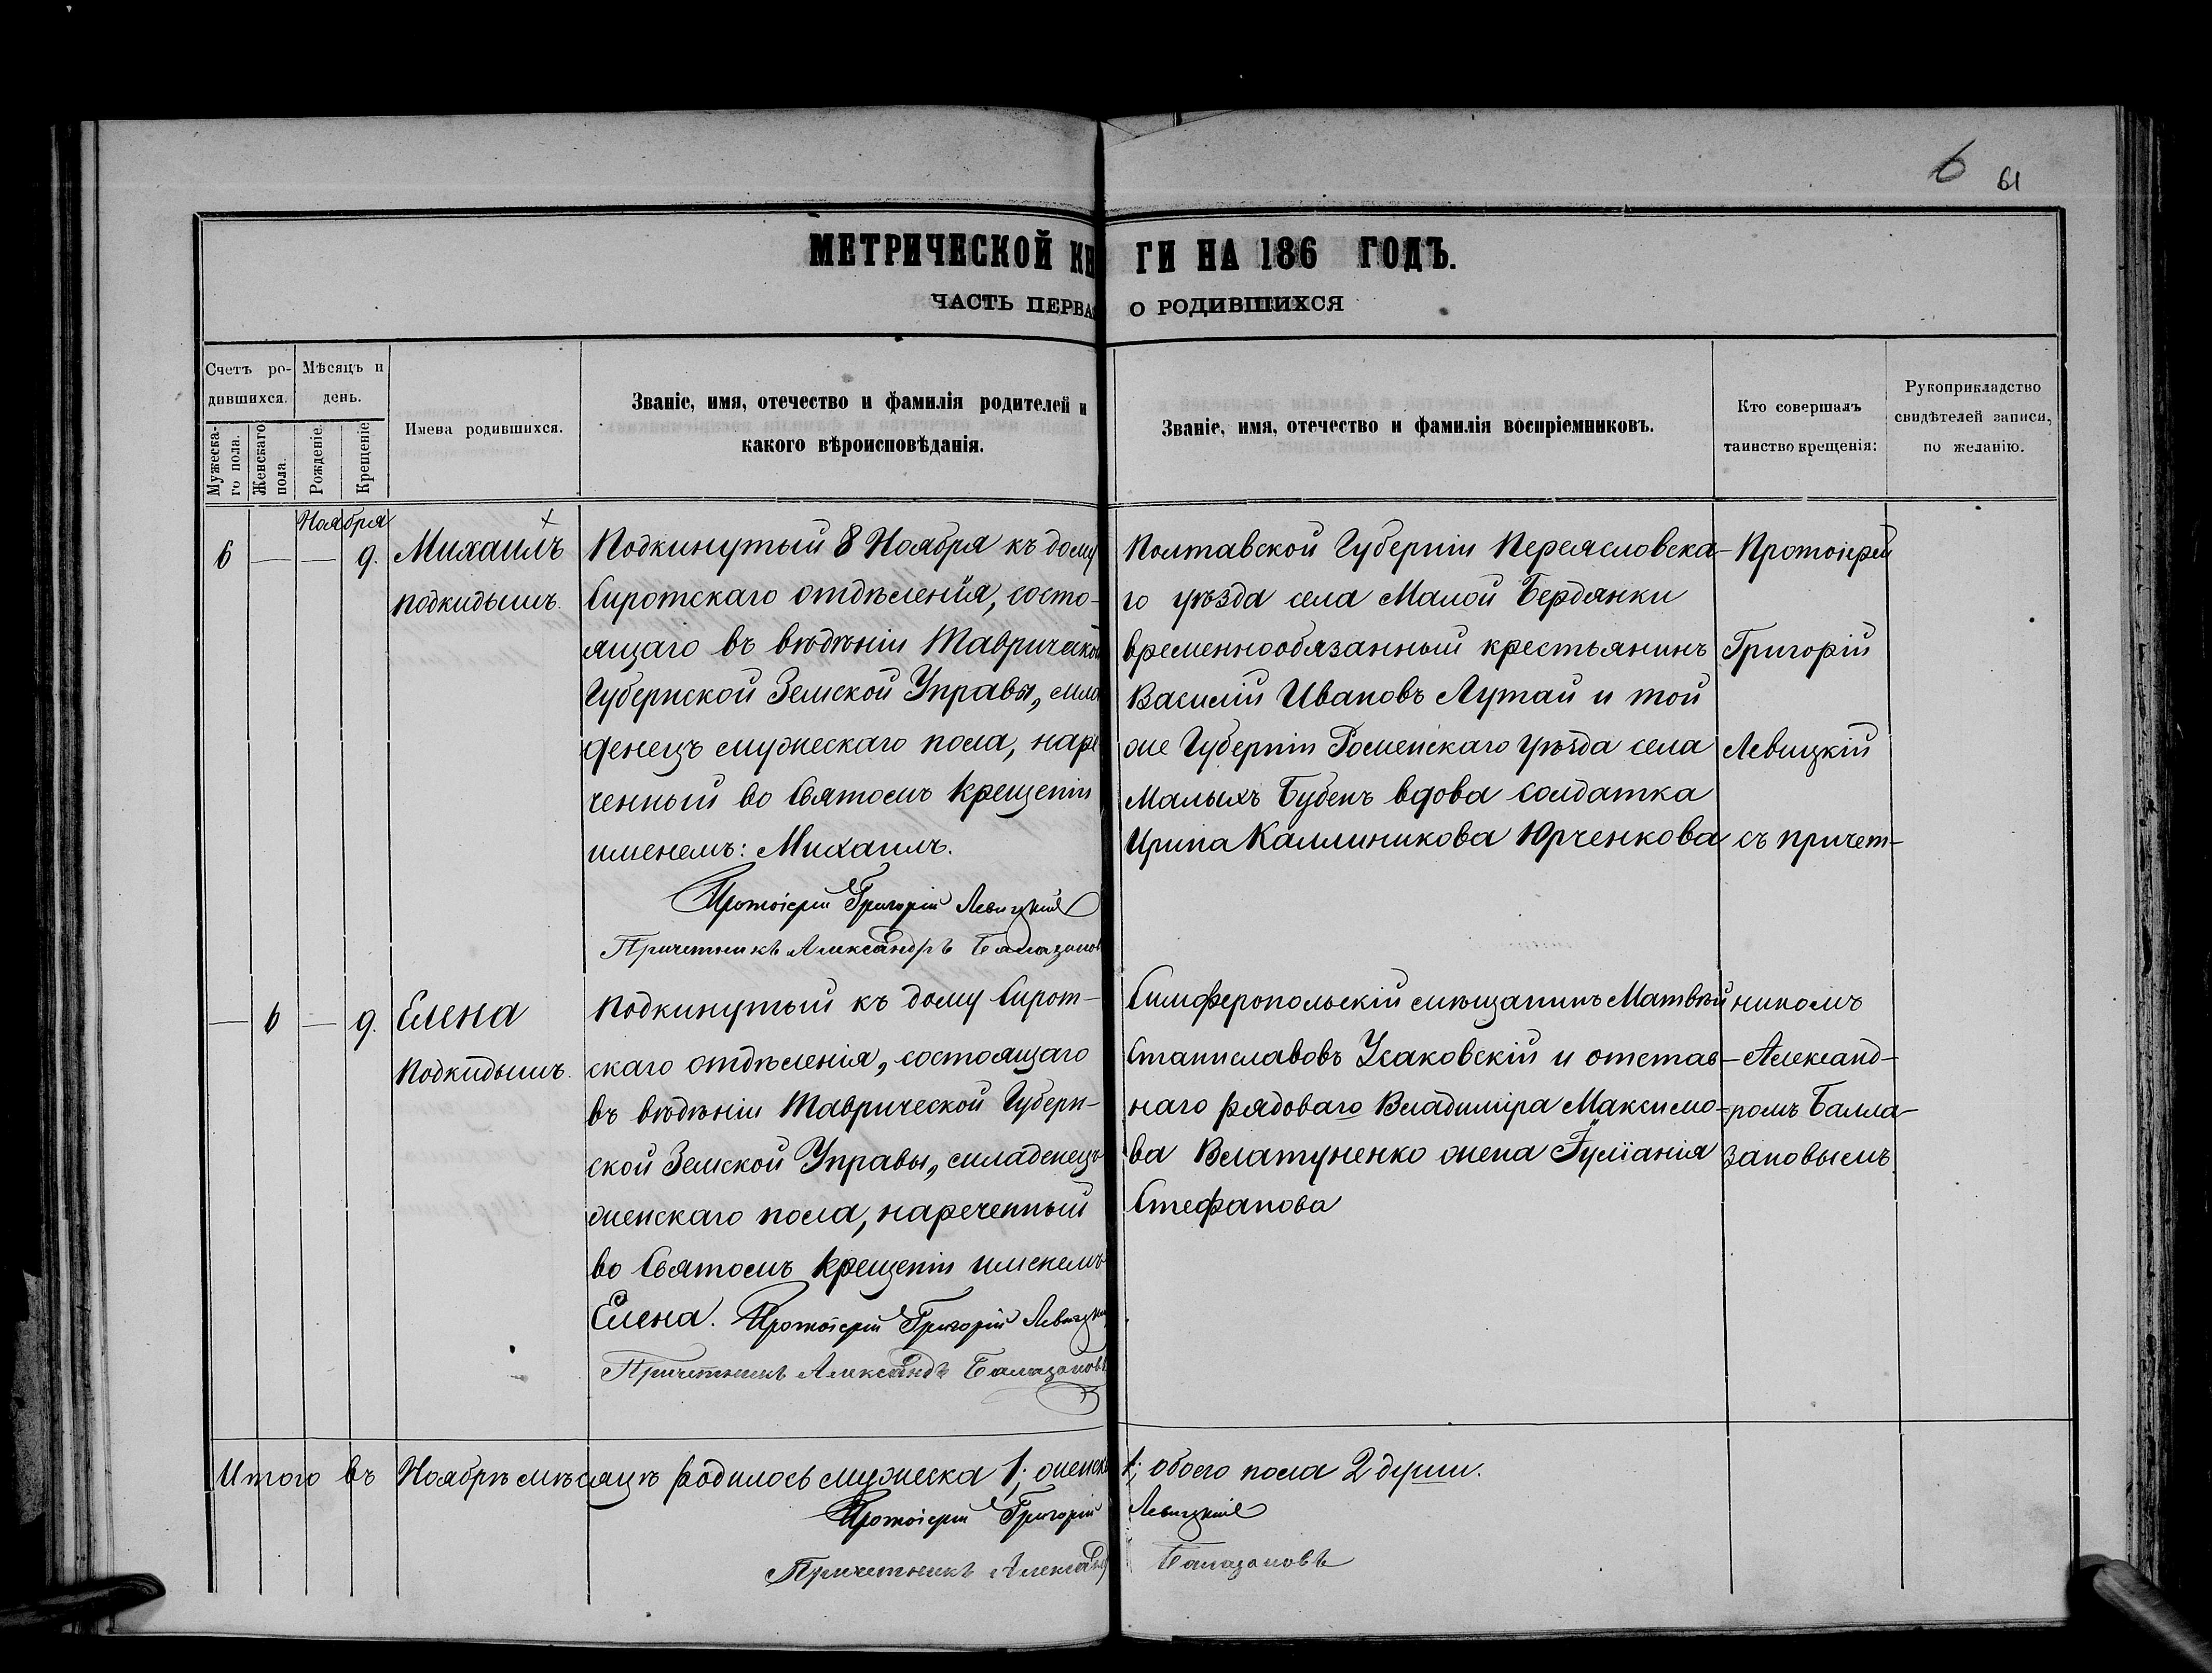 6 61
МЕТРИЧЕСКОЙ КН ГИ НА 186 ГОДЪ.
ЧАСТЬ ПЕРВА О РОДИВШИХСЯ
Счетъ ро-
дившихся.
Мужеска-
го пола.
Женскаго
пола.
Мѣсяцъ и
день.
Рожденіе.
Крещеніе
Имена родившихся.
Званіе, имя, отечество и фамилія родителей и
какого вѣроисповѣданія.
Званіе, имя, отечество и фамилія воспріемниковъ.
Кто совершалъ
таинство крещенія:
Рукоприкладство
свидѣтелей записи,
по желанію.
Ноября
6 — — 9.
Михаилъ
подкидышъ.
Подкинутый 8 Ноября къ дому
Сиротскаго отдѣленія, состо-
ящаго въ вѣдѣніи Таврической
Губернской Земской Управы, мла
денецъ мужескаго пола, наре
ченный во Святомъ крещеніи
именемъ: Михаилъ.
Протоіерей Григорій Левицкій
Причетникъ Александръ Балазанов
Полтавской Губерніи Переясловска-
го уѣзда села Малой Бердянки
временнообязанный крестьянинъ
Василій Ивановъ Лутай и той
же Губерніи Роменскаго уѣзда села
Малыхъ Бубенъ вдова солдатка
Ирина Каллиникова Юрченкова
Протоіерей
Григорій
Левицкій
съ причет-
— 6 — 9.
Елена
Подкидышъ.
Подкинутый къ дому Сирот-
скаго отдѣленія, состоящаго
въ вѣдѣніи Таврической Губерн-
ской Земской Управы, младенецъ
женскаго пола, нареченный
во Святомъ крещеніи именемъ
Елена. Протоіерей Григорій Левицкій
Причетникъ Александъ Балазановъ
Симферопольскій мѣщанинъ Матвѣй
Станиславовъ Усаковскій и отстав-
наго рядоваго Владиміра Максимо-
ва Влатуненко жена Іуліанія
Стефанова
никомъ
Александ-
ромъ Балла-
зановымъ
Итого въ Ноябрѣ мѣсяцѣ родилось мужеска 1; женска 1; обоего пола 2 души.
Протоіерей Григорій Левицкій
Причетникъ Александ Балазановъ